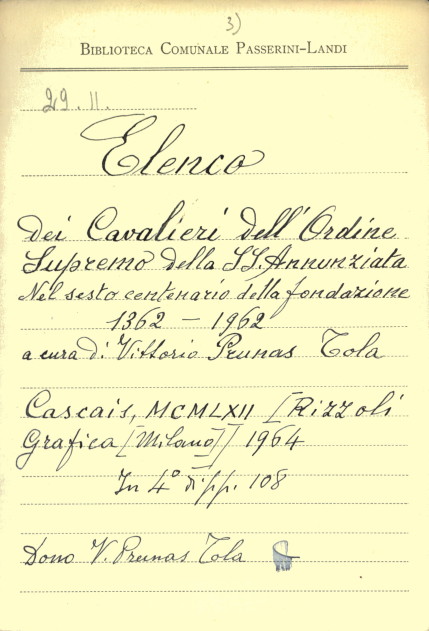 3)
BIBLIOTECA COMUNALE PASSERINI-LANDI
29. II.
Elenco
dei Cavalieri dell'Ordine
Supremo della SS. Annunziata
Nel sesto centenario della fondazione
1362 - 1962
a cura di Vittorio Prunas Tola
Cascais, MCMLXII [Rizzoli
Grafica [Milano]] 1964
In 4° di pp. 108
Dono V. Prunas Tola